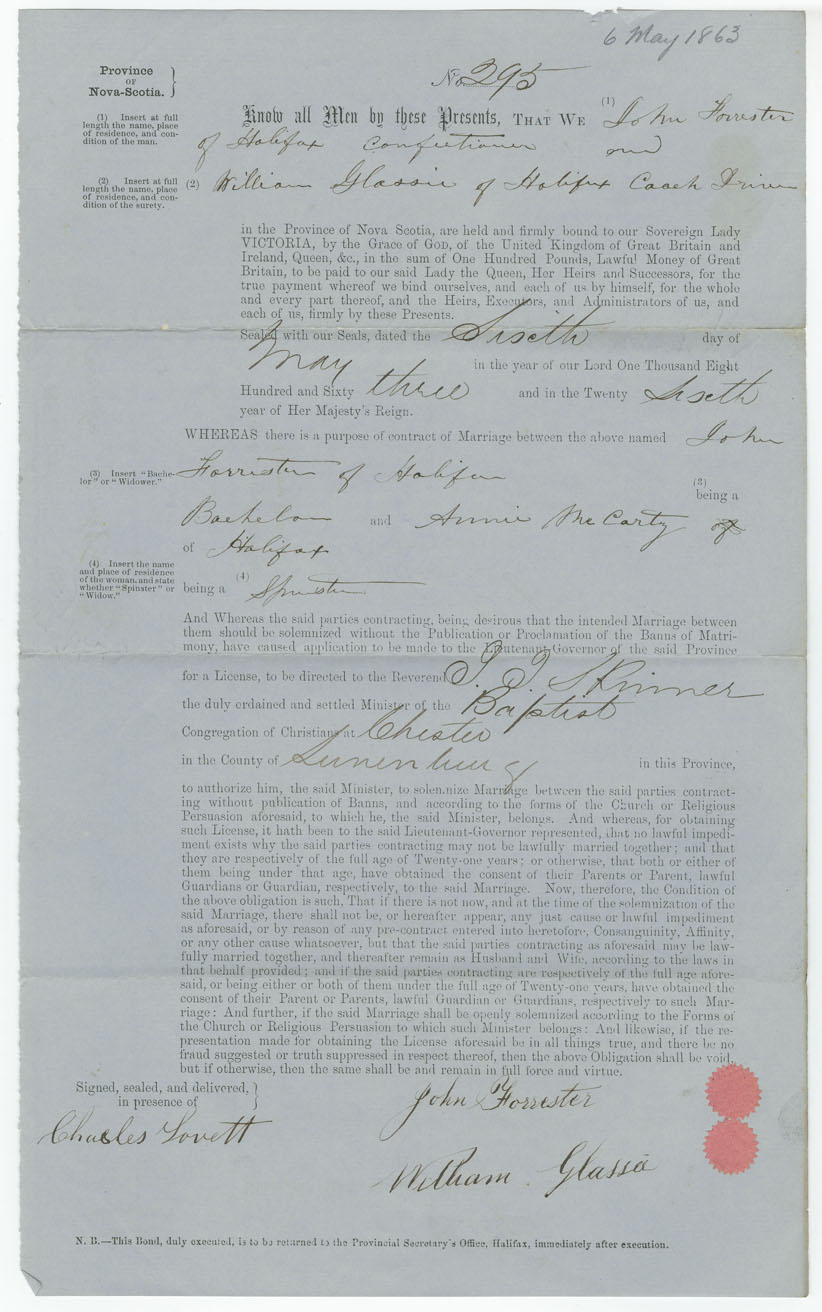 6 May 1863
Province
OF
Nova-Scotia.
No. 295
(1) Insert at full
length the name, place
of residence, and con-
dition of the man.
Know all Men by these Presents, THAT WE (1) John Forrester
of Halifax Confectioner and
(2) Insert at full
length the name, place
of residence, and con-
dition of the surety.
(2) William Glassie of Halifax Coach Driver
in the Province of Nova Scotia, are held and firmly bound to our Sovereign Lady
VICTORIA, by the Grace of GOD, of the United Kingdom of Great Britain and
Ireland, Queen, &c., in the sum of One Hundred Pounds, Lawful Money of Great
Britain, to be paid to our said Lady the Queen, Her Heirs and Successors, for the
true payment whereof we bind ourselves, and each of us by himself, for the whole
and every part thereof, and the Heirs, Executors, and Administrators of us, and
each of us, firmly by these Presents.
Sealed with our Seals, dated the Sixeth day of
May in the year of our Lord One Thousand Eight
Hundred and Sixty three and in the Twenty Sixeth
year of Her Majesty's Reign.
WHEREAS there is a purpose of contract of Marriage between the above named John
(3) Insert "Bache-
lor" or "Widower."
Forrester of Halifax (3)
being a
Bachelor and Annie McCarty of
of Halifax
(4) Insert the name
and place of residence
of the woman, and state
whether "Spinster" or
"Widow."
being a (4) Spinster
And Whereas the said parties contracting, being desirous that the intended Marriage between
them should be solemnized without the Publication or Proclamation of the Banns of Matri-
mony, have caused application to be made to the Lieutenant-Governor of the said Province
for a License, to be directed to the Reverend I. J. Skinner
the duly ordained and settled Minister of the Baptist
Congregation of Christians at Chester
in the County of Lunenburg in this Province,
to authorize him, the said Minister, to solemnize Marriage between the said parties contract-
ing without publication of Banns, and according to the forms of the Church or Religious
Persuasion aforesaid, to which he, the said Minister, belongs. And whereas, for obtaining
such License, it hath been to the said Lieutenant-Governor represented, that no lawful impedi-
ment exists why the said parties contracting may not be lawfully married together; and that
they are respectively of the full age of Twenty-one years; or otherwise, that both or either of
them being under that age, have obtained the consent of their Parents or Parent, lawful
Guardians or Guardian, respectively, to the said Marriage. Now, therefore, the Condition of
the above obligation is such, That if there is not now, and at the time of the solemnization of the
said Marriage, there shall not be, or hereafter appear, any just cause or lawful impediment
as aforesaid, or by reason of any pre-contract entered into heretofore, Consanguinity, Affinity,
or any other cause whatsoever, but that the said parties contracting as aforesaid may be law-
fully married together, and thereafter remain as Husband and Wife, according to the laws in
that behalf provided; and if the said parties contracting are respectively of the full age afore-
said, or being either or both of them under the full age of Twenty-one years, have obtained the
consent of their Parent or Parents, lawful Guardian or Guardians, respectively to such Mar-
riage: And further, if the said Marriage shall be openly solemnized according to the Forms of
the Church or Religious Persuasion to which such Minister belongs: And likewise, if the re-
presentation made for obtaining the License aforesaid be in all things true, and there be no
fraud suggested or truth suppressed in respect thereof, then the above Obligation shall be void,
but if otherwise, then the same shall be and remain in full force and virtue.
Signed, sealed, and delivered,
in presence of
John Forrester
Charles Lovett
William Glassie
N. B.—This Bond, duly executed, is to be returned to the Provincial Secretary's Office, Halifax, immediately after execution.